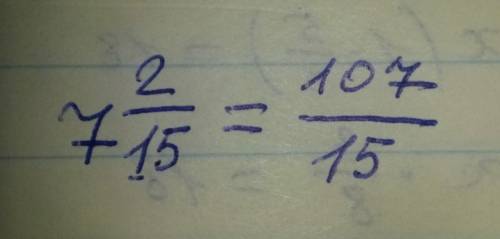 7 2/15 = 107/15